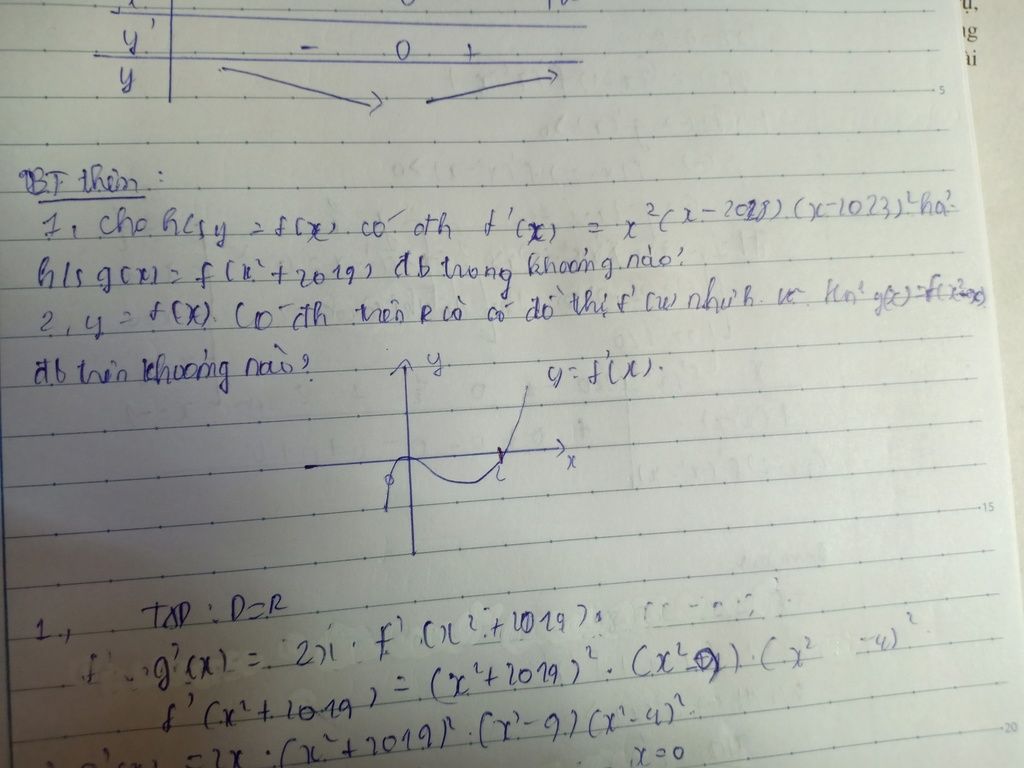 y' - 0 +
y
BT thêm :
1, cho h/s y = f(x) có đh f'(x) = x²(x-2028)(x-2023)² hỏi
h/s g(x) = f(x²+2019) đb trong khoảng nào?
2, y = f(x). Có đh trên R có đồ thị f' như h. vẽ Hỏi g(x)=
đb trên khoảng nào?
y y=f'(x).
x
1., TXĐ : D=R
g'(x) = 2x. f'(x²+2019).
f'(x²+2019) = (x²+2019)². (x²-9). (x² -4)².
= 2x.(x²+2019)².(x²-9)(x²-4)².
x=0
5
15
20